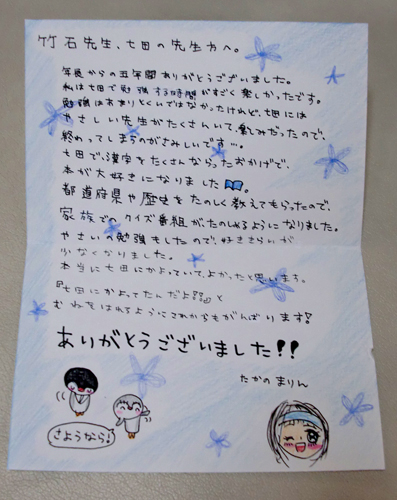 竹石先生、七田の先生方へ。
年長からの五年間ありがとうございました。
私は七田で勉強する時間がすごく楽しかったです。
勉強はあまりとくいではなかったけれど、七田には
やさしい先生がたくさんいて、楽しみだったので、
終わってしまうのがさみしいです…。
七田で、漢字をたくさんならったおかげで、
本が大好きになりました。
都道府県や歴史をたのしく教えてもらったので、
家族でのクイズ番組が、たのしめるようになりました。
やさいの勉強もしたので、好ききらいが
少なくなりました。
本当に七田にかよっていて、よかったと思います。
『七田にかよってたんだよ!!』と
むねをはれるようにこれからもがんばります!
ありがとうございました!!
たかの まりん
さようなら!